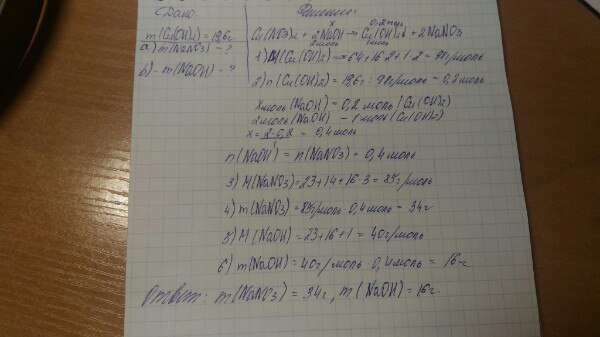 Дано:
m(Cu(OH)2) = 19,6г
а) m(NaNO3) - ?
б) - m(NaOH) - ?
Решение:
x 0,2 моль
Cu(NO3)2 + 2NaOH → Cu(OH)2↓ + 2NaNO3
2моль 1моль
1) M(Cu(OH)2) = 64 + 16·2 + 1·2 = 98г/моль
2) n(Cu(OH)2) = 19,6г : 98г/моль = 0,2 моль
x моль (NaOH) = 0,2 моль (Cu(OH)2)
2 моль (NaOH) - 1 моль (Cu(OH)2)
x = 2·0,2/1 = 0,4 моль
n(NaOH) = n(NaNO3) = 0,4 моль
3) M(NaNO3) = 23 + 14 + 16·3 = 85г/моль
4) m(NaNO3) = 85г/моль · 0,4 моль = 34г
5) M(NaOH) = 23 + 16 + 1 = 40г/моль
6) m(NaOH) = 40г/моль · 0,4 моль = 16г
Ответ: m(NaNO3) = 34г, m(NaOH) = 16г